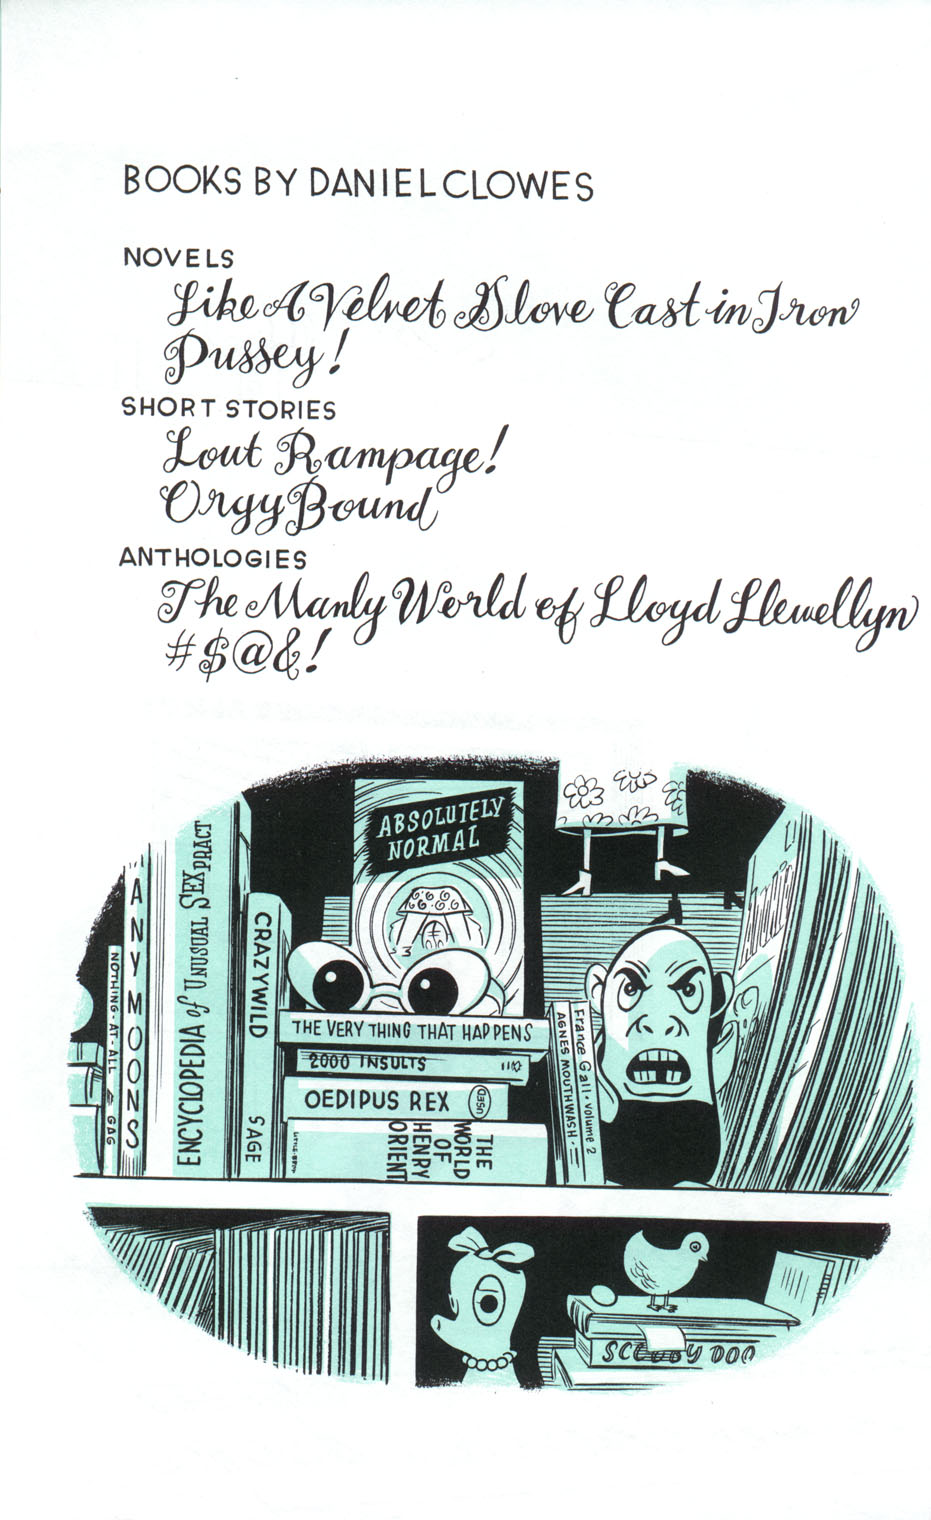 BOOKS BY DANIEL CLOWES
NOVELS
Like A Velvet Glove Cast in Iron
Pussey!
SHORT STORIES
Lout Rampage!
Orgy Bound
ANTHOLOGIES
The Manly World of Lloyd Llewellyn
#$@&!
NOTHING-AT-ALL GAG
ANY MOONS
ENCYCLOPEDIA of UNUSUAL SEX PRACT
CRAZYWILD SAGE
ABSOLUTELY
NORMAL
THE VERY THING THAT HAPPENS
2000 INSULTS
OEDIPUS REX USED
THE
WORLD
OF
HENRY
ORIENT
France Gall • Volume 2
AGNES MOUTHWASH
SCOOBY DOO